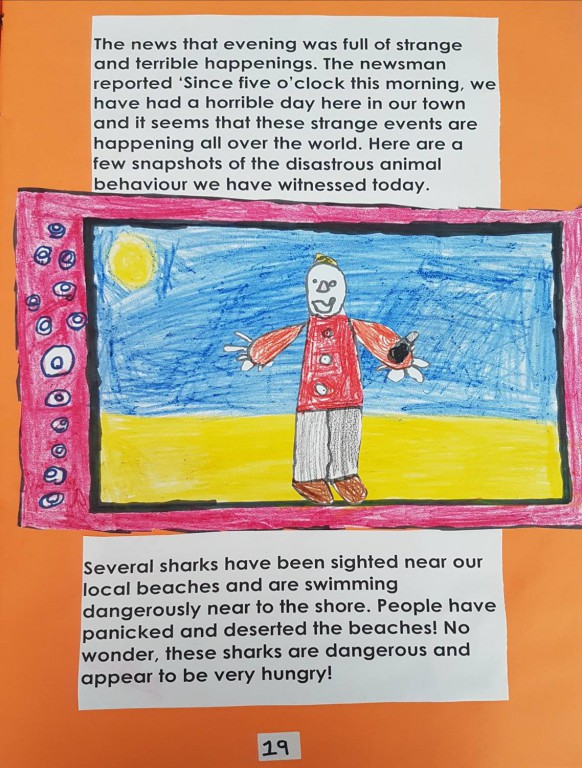 The news that evening was full of strange
and terrible happenings. The newsman
reported ‘Since five o’clock this morning, we
have had a horrible day here in our town
and it seems that these strange events are
happening all over the world. Here are a
few snapshots of the disastrous animal
behaviour we have witnessed today.
Several sharks have been sighted near our
local beaches and are swimming
dangerously near to the shore. People have
panicked and deserted the beaches! No
wonder, these sharks are dangerous and
appear to be very hungry!
19